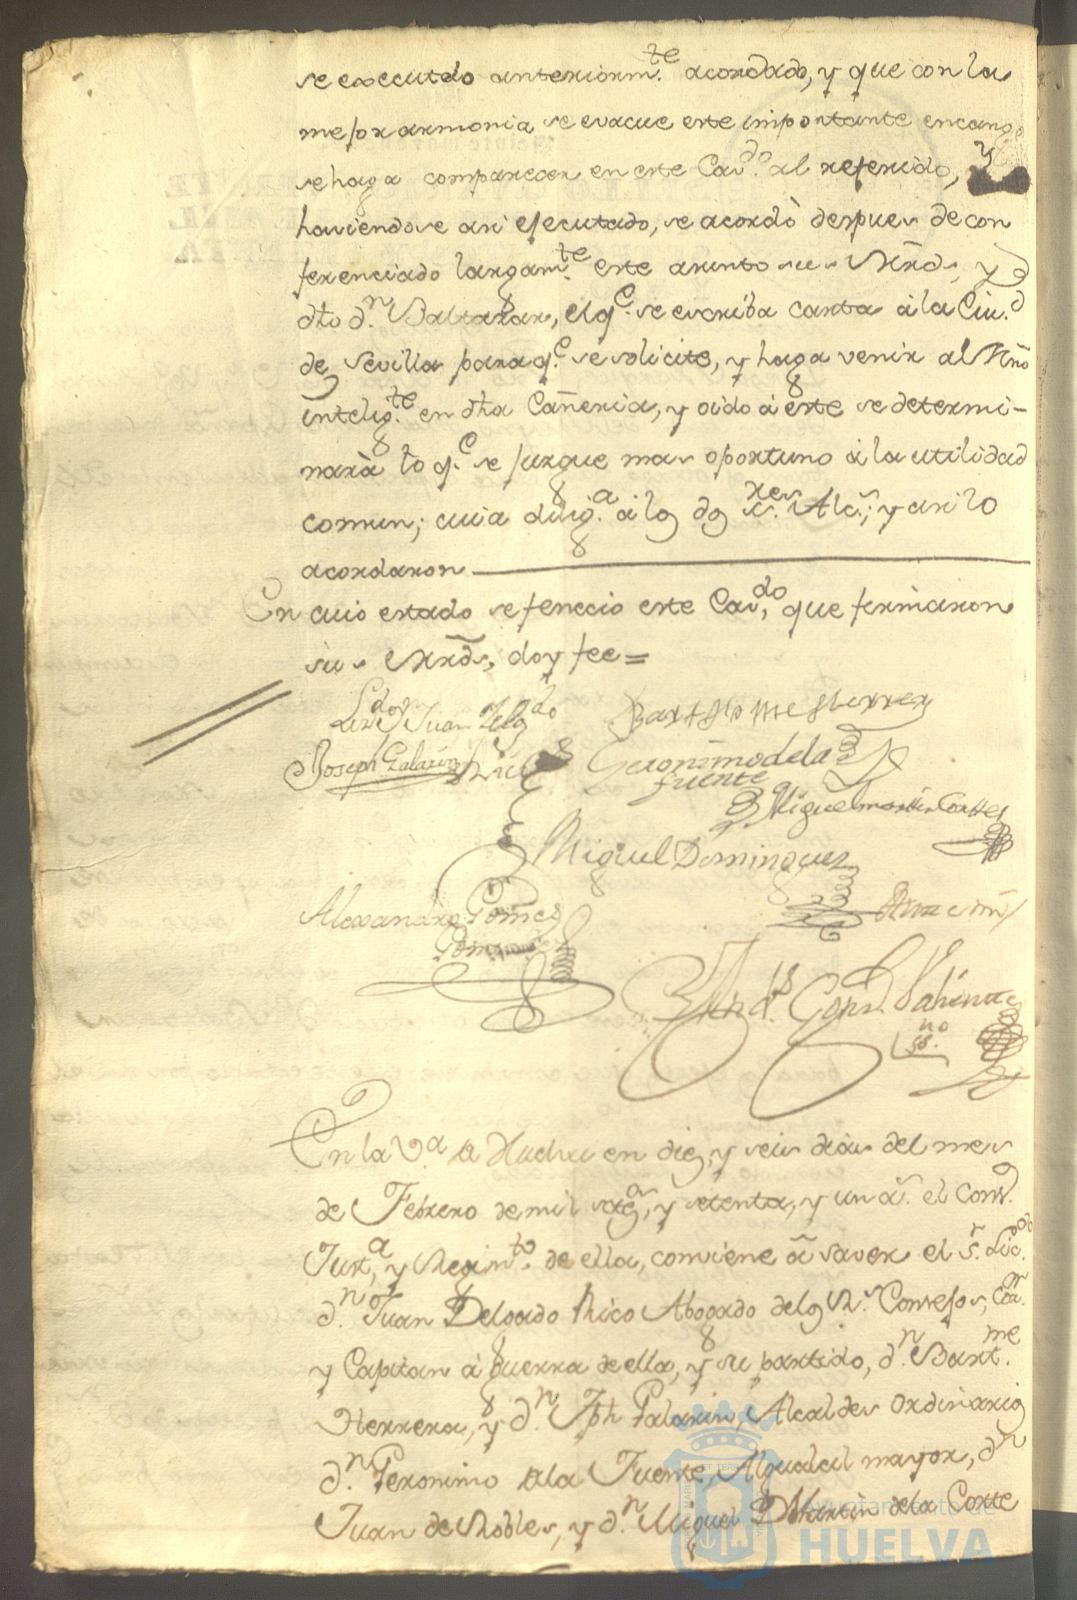 se executdo anteriorm.te acordado, y que con la
mejor armonia se evacue este importante encargo
se haga comparecer en este Cav.do al referido, y
haviendose asi ejecutado, se acordò despues de con
ferenciado largam.te este asunto sus Mrds, y
dto d.n Baltazar, el q.e se escriba carta à la Ciu.d
de Sevilla para q.e se solicite, y haga venir al Mrõ
intelig.te en dha Cañeria, y oido à este se determi-
narà lo q.e se jusgue mas oportuno à la utilidad
comun; cuia dilig.a à los dos s.res Alc.s; y asi lo
acordaron
En cuio estado se fenecio este Cav.do, que firmaron
sus Mrds, doy fee=
Lizdo Juan Delgdo Bartholome Herrera
Joseph Galarin Rico Geronimo de la
fuente
Miguel martin Cortes
Miguel Dominguez
Alexandro Gomez
And.s Gonz.
ss.no
En la V.a de Huelva en diez, y seis dias del mes
de Febrero de mil seteg.s, y setenta, y un a.s el Cons.o
Just.a, y Regim.to de ella, conviene à saver el s.r Lic.do
d.n Juan Delgado Rico Abogado de los R.s Consejos, Cor.r
y Capitan à guerra de ella, y su partido, d.n Bart.me
Herrera, y d.n Jph Galarin, Alcaldes ordinarios
d.n Geronimo de la Fuente, Alguacil mayor, d.n
Juan de Robles, y d.n Miguel Martin de la Corte
Ayuntamiento de
HUELVA